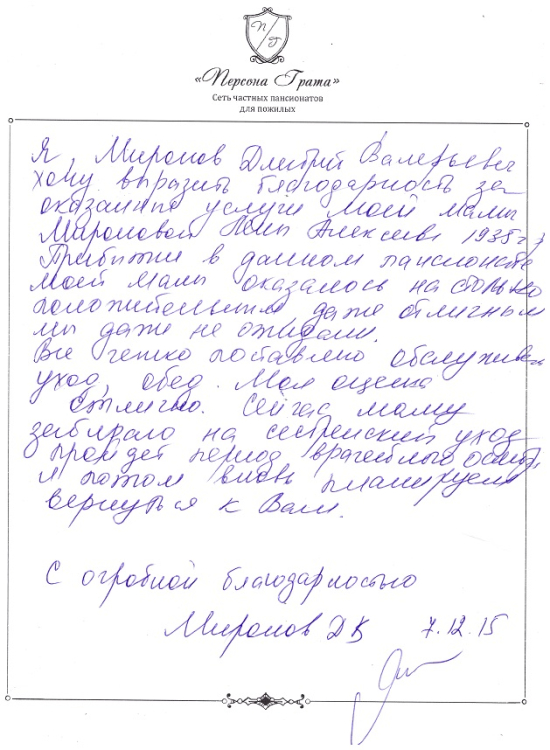 П Г
«Персона Грата»
Сеть частных пансионатов
для пожилых
Я, Миронов Дмитрий Валерьевич
хочу выразить благодарность за
оказанные услуги моей мамы
Мироновой Алексеевне 1935 г
Прибытие в данном пансионате
моей мамы оказалось настолько
положительным, даже отличным
мы даже не ожидали.
Все четко поставлено обслуживан
уход, обед. Моя оценка
отлично. Сейчас маму
забираю на сестренский уход
пройдет период врачебного
и потом вновь планируем
вернуться к Вам.
С огробной благодарностью
Миронов ДВ 7.12.15